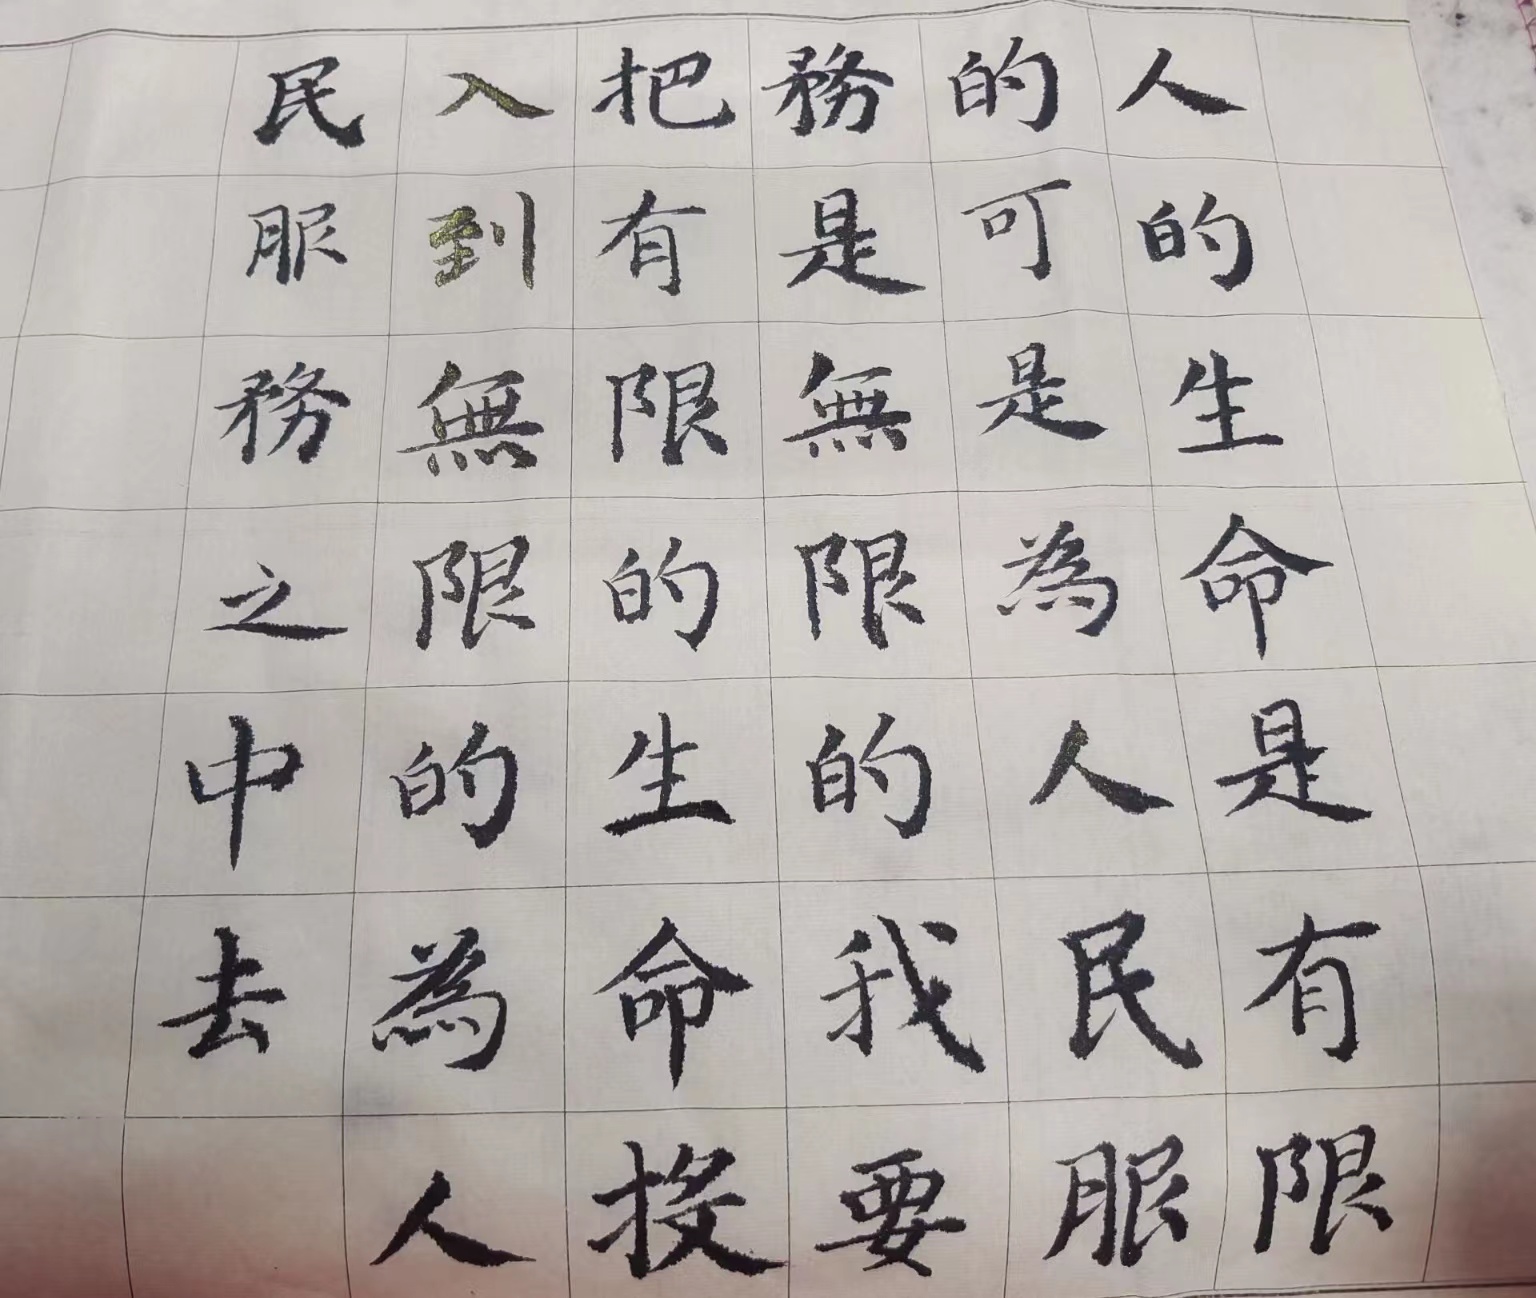 人的生命是有限
的可是為人民服
務是無限的我要
把有限的生命投
入到無限的為人
民服務之中去